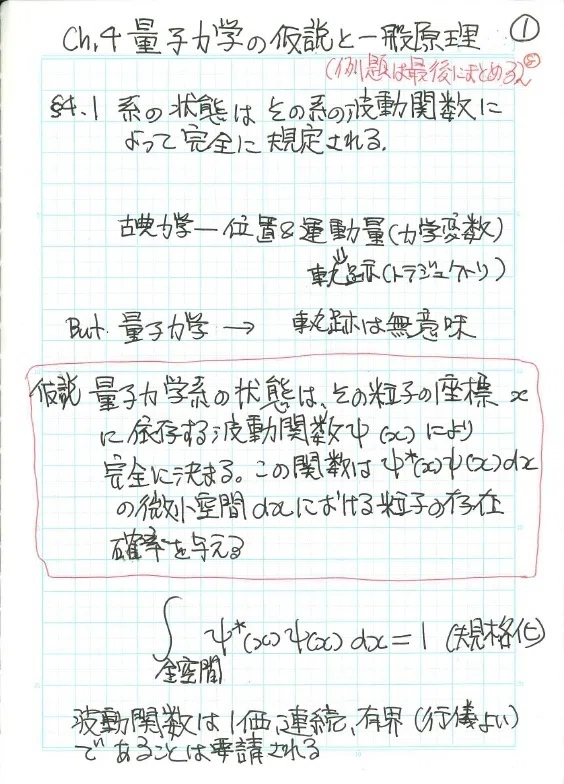 ①
Ch.4 量子力学の仮説と一般原理
(例題は最後にまとめる)
§4.1 系の状態は その系の波動関数に
よって完全に規定される.
古典力学—位置&運動量(力学変数)
⇓
軌跡(トラジェクトリ)
But 量子力学 → 軌跡は無意味
仮説 量子力学系の状態は、その粒子の座標 x
に依存する波動関数ψ(x)により
完全に決まる。この関数は ψ*(x)ψ(x)dx
の微小空間dxにおける粒子の存在
確率を与える
∫ ψ*(x)ψ(x)dx = 1 (規格化)
全空間
波動関数は1価、連続、有界(行儀よい)
であることは要請される